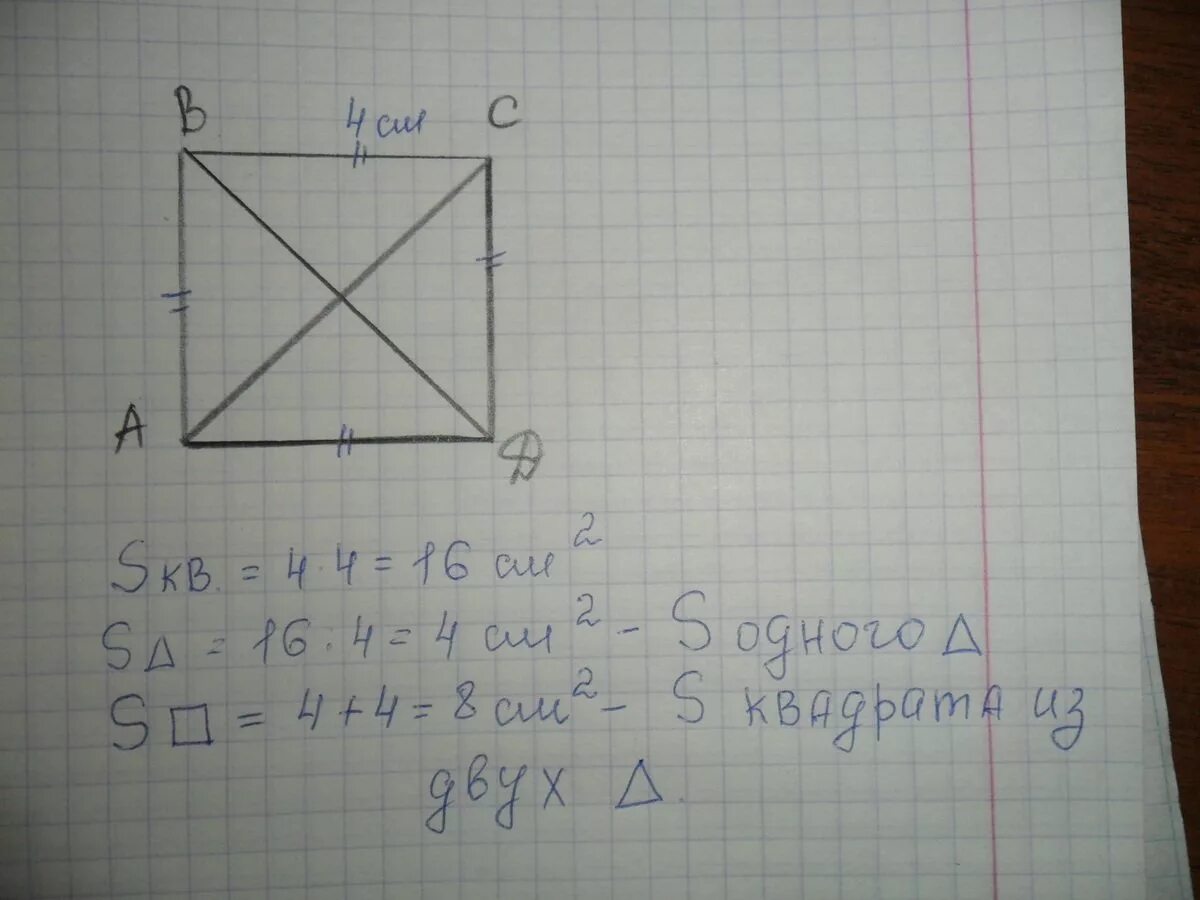 B 4 см C
A D
Sкв. = 4 · 4 = 16 см²
S△ = 16 : 4 = 4 см² - S одного △
S□ = 4 + 4 = 8 см² - S квадрата из
двух △.